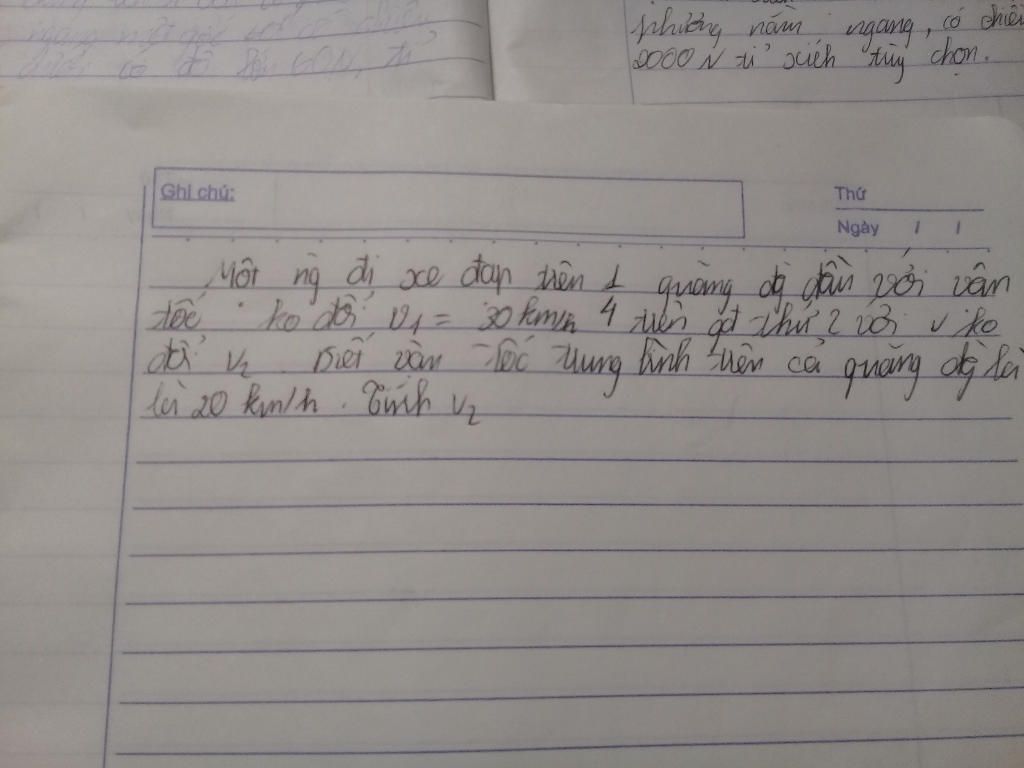 phương nằm ngang, có chiều
2000 N tỉ xích tùy chọn.
Ghi chú:
Thứ
Ngày / /
Một ng đi xe đạp trên 1 quãng đg đầu với vận
tốc ko đổi v1 = 30 km/h 4 trên qđ thứ 2 với v ko
đổi v2. Biết vận tốc trung bình trên cả quãng đg là
là 20 km/h. Tính v2